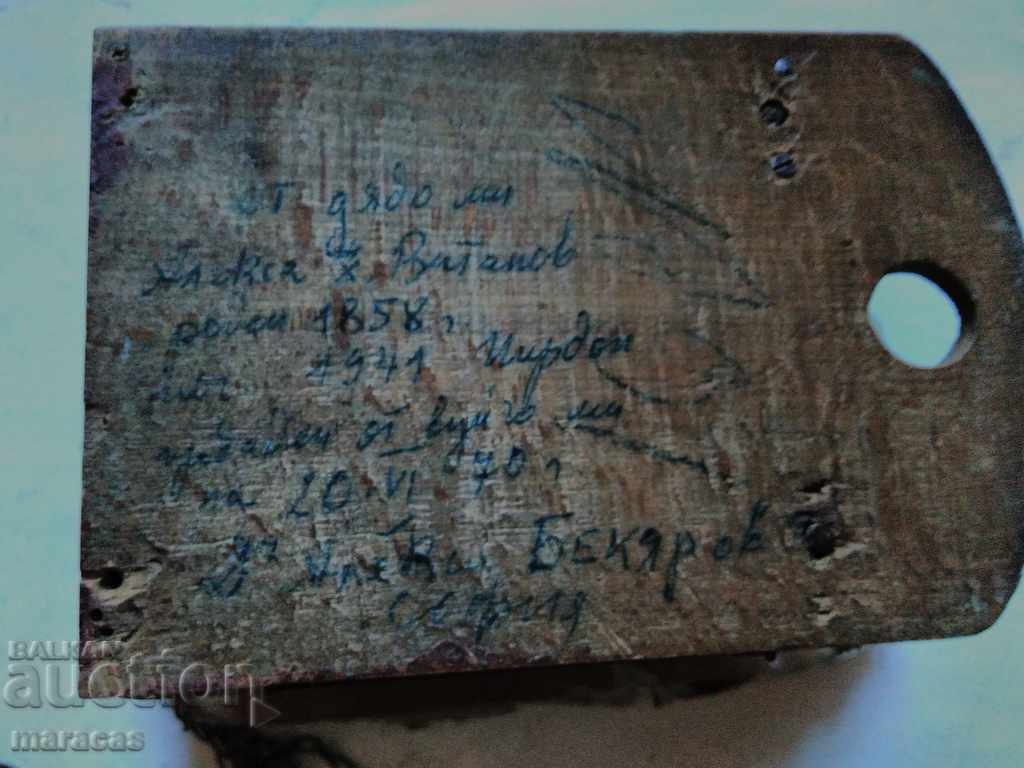 от дядо ми
Алекса х. Витанов
роден 1858 г
1941 Цирдоп
от вуйчо ми
на 20.VI 70 г
Алекси БЕКЯРОВ
София
BALKAN
auction
maracas